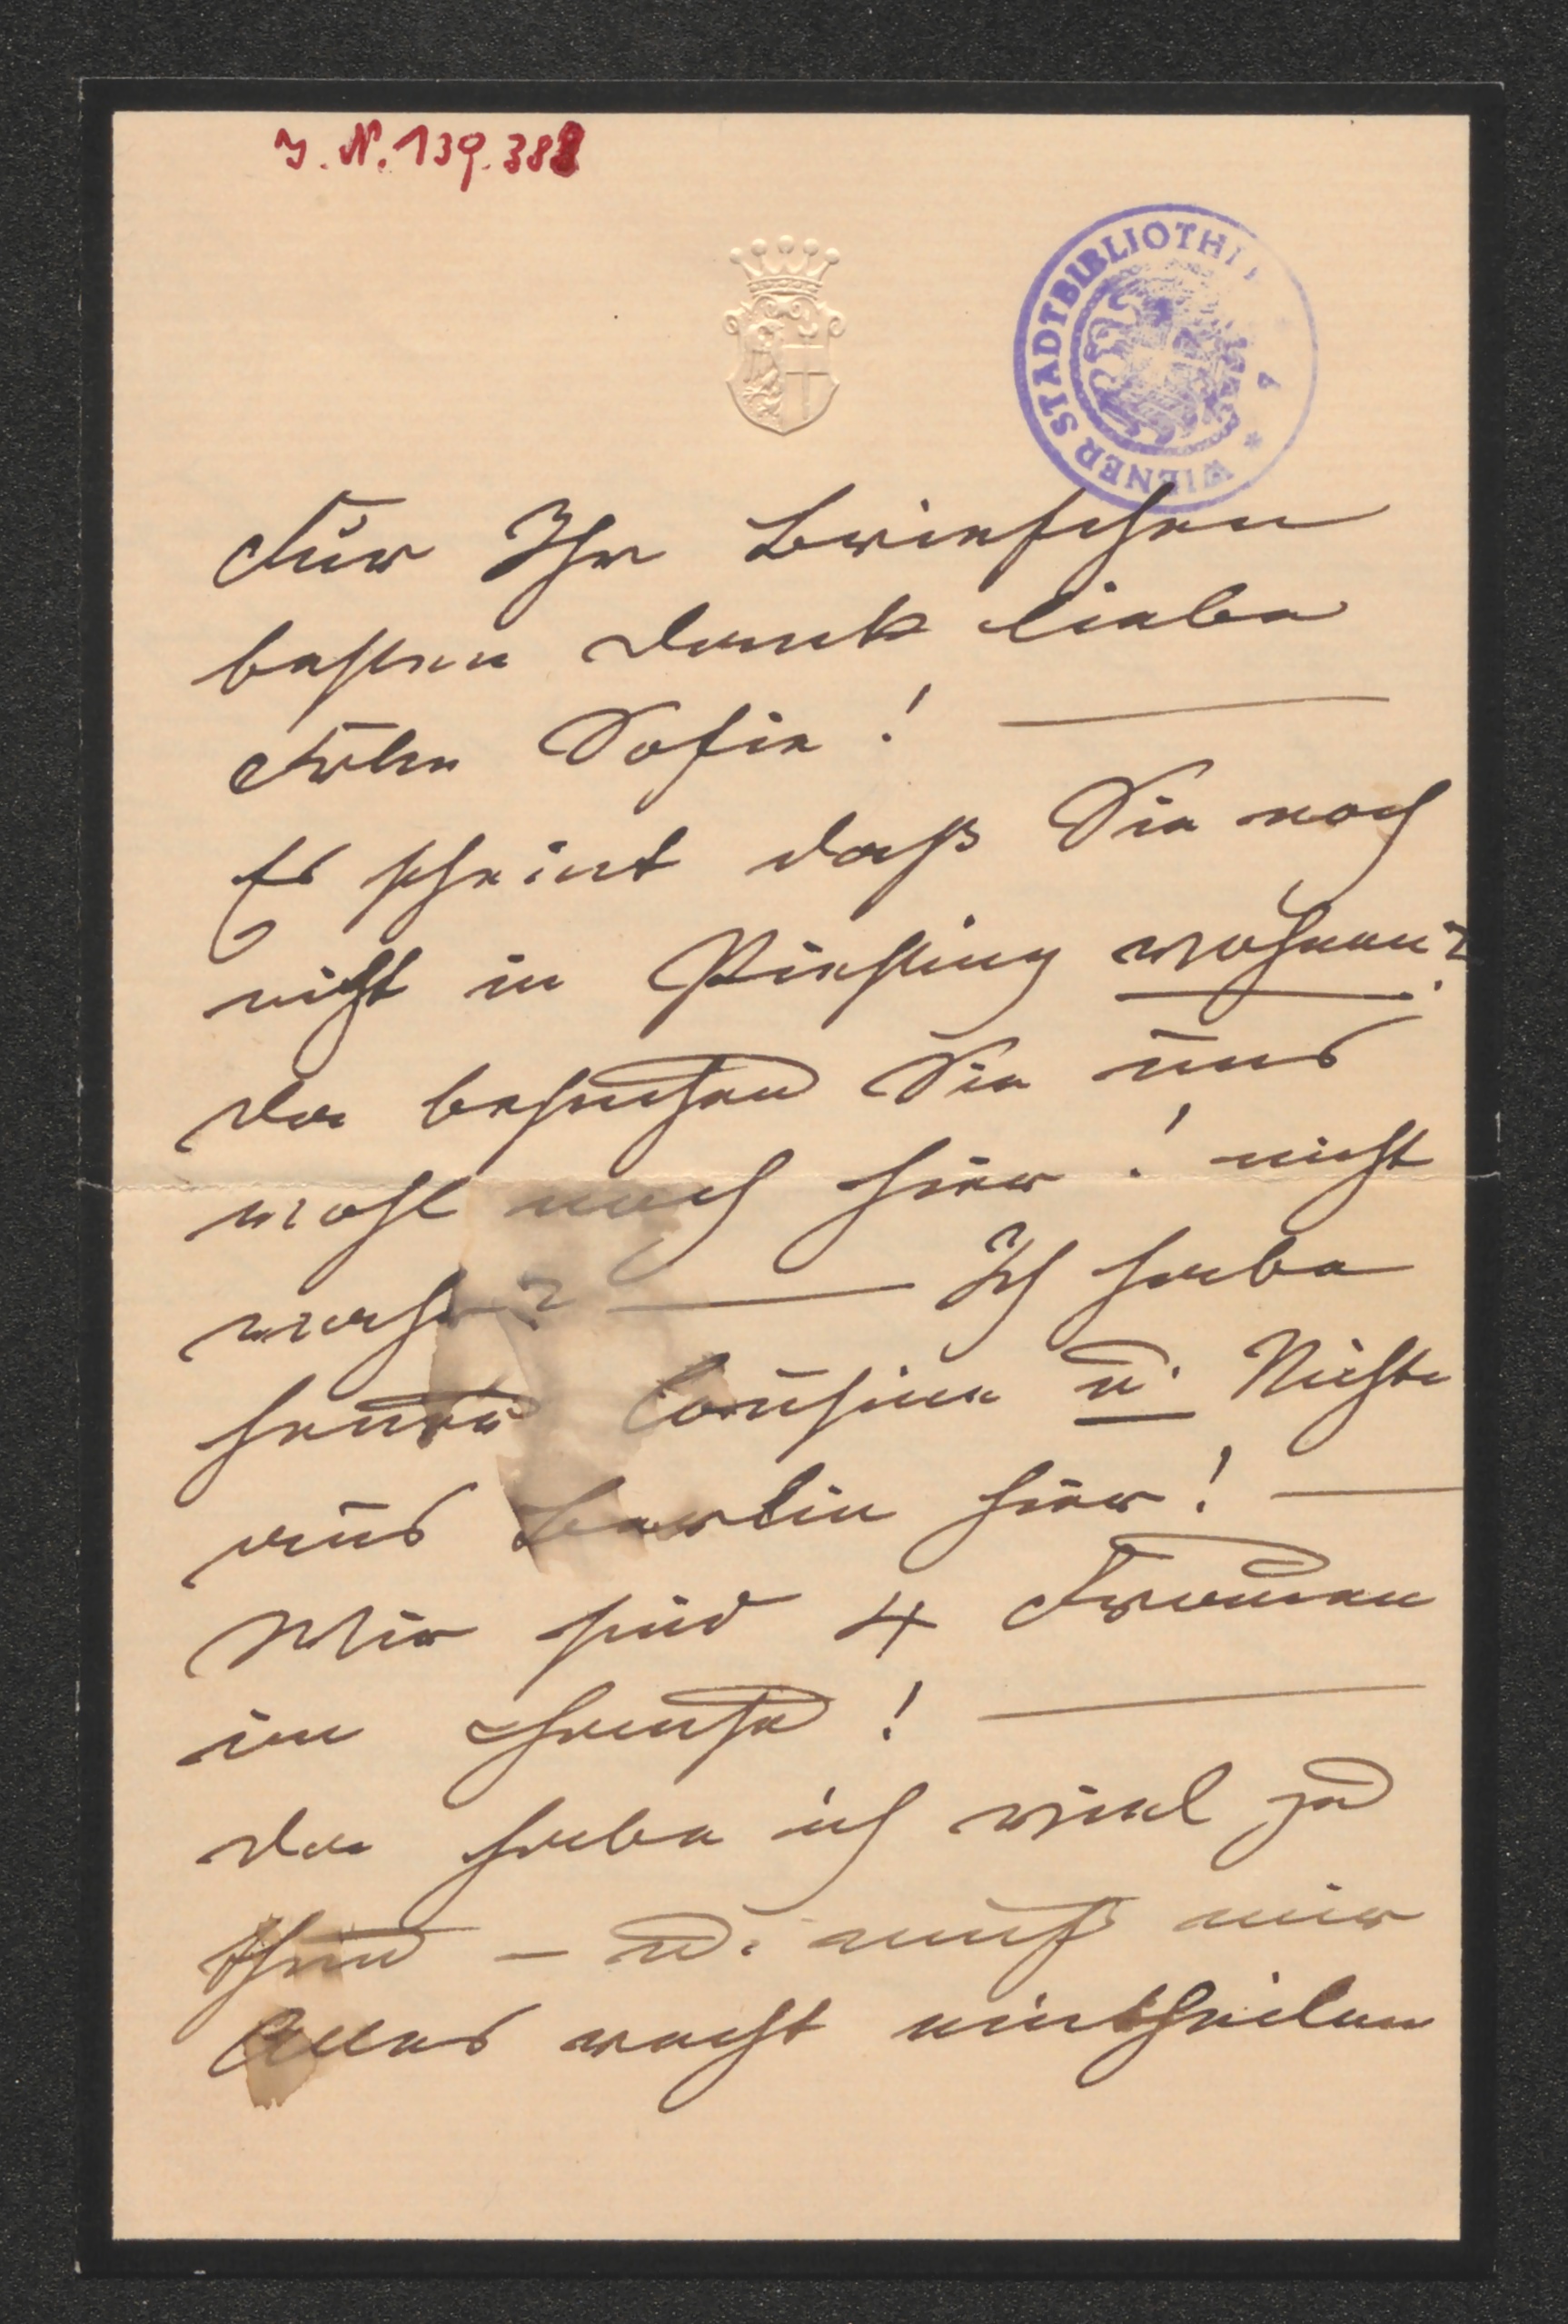 I. N. 139.388
WIENER STADTBIBLIOTH
Für Ihr Briefchen
besten Dank liebe
Frln Sofie! —
Es scheint daß Sie noch
nicht in Piesting wohnen?
da besuchen Sie uns
wohl noch hier! nicht
wahr? — Ich habe
heute Cousine u. Nichte
aus Berlin hier! —
Wir sind 4 Frauen
im Hause! —
da habe ich viel zu
thun — u. muß mir
Alles recht eintheilen